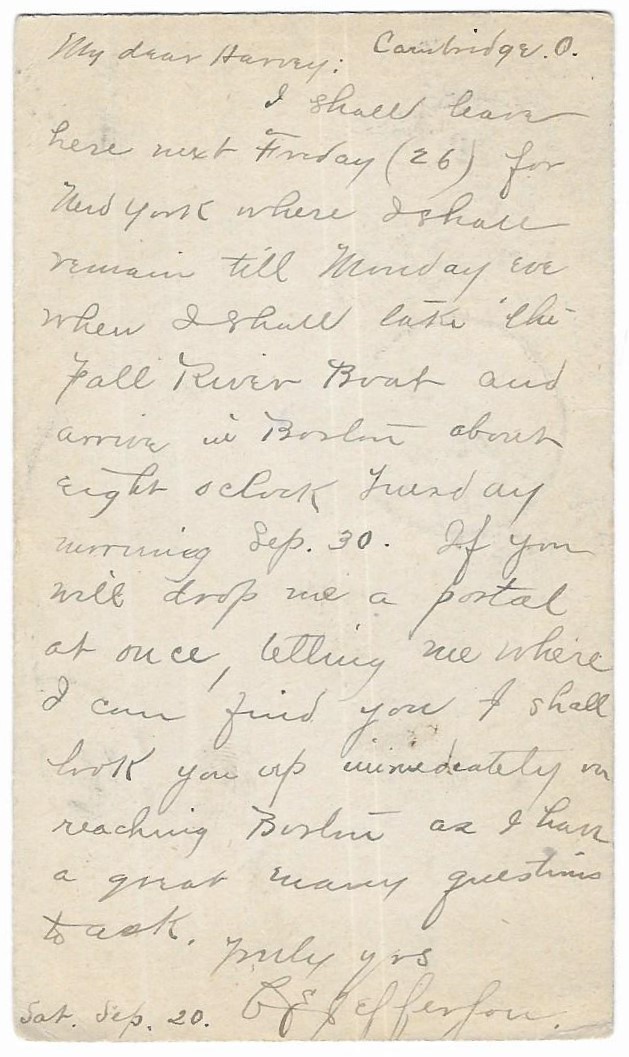 My dear Harvey: Cambridge. O.
I shall leave
here next Friday (26) for
New York where I shall
remain till Monday eve
when I shall take the
Fall River Boat and
arrive in Boston about
eight oclock Tuesday
morning Sep. 30. If you
will drop me a postal
at once, letting me where
I can find you I shall
look you up immediately on
reaching Boston as I have
a great many questions
to ask.
Truly yrs
Sat. Sep. 20. C E Jefferson.